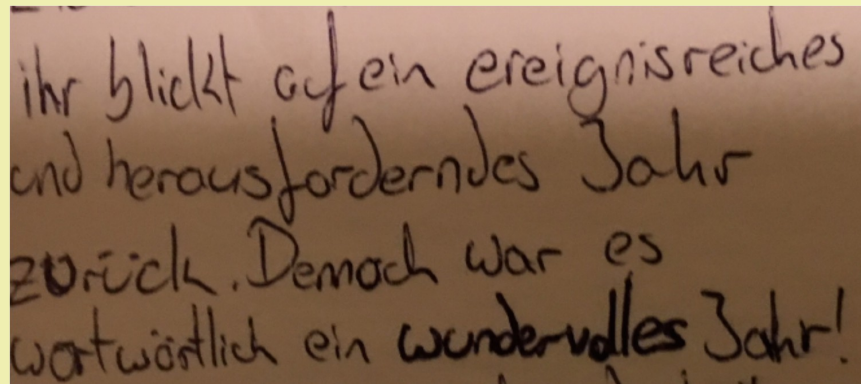 ihr blickt auf ein ereignisreiches
und herausforderndes Jahr
zurück. Dennoch war es
wortwörtlich ein wundervolles Jahr!